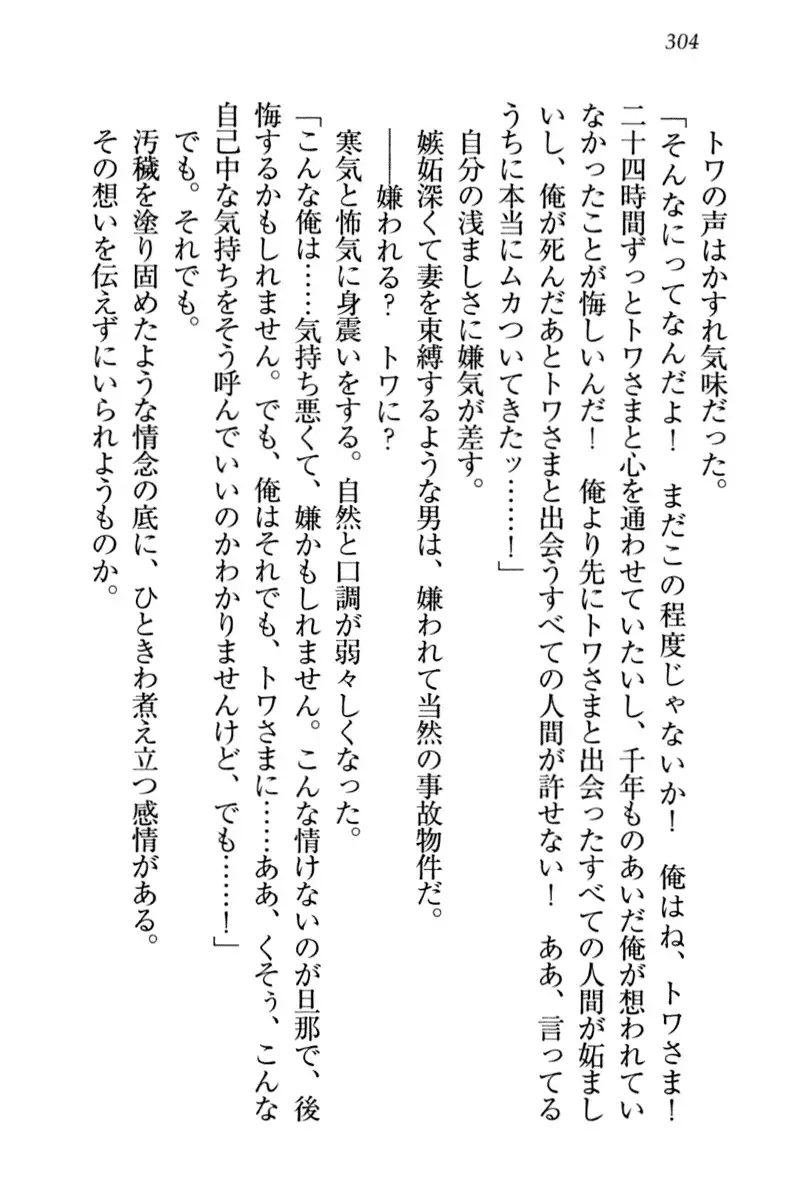 304
トワの声はかすれ気味だった。
「そんなにってなんだよ！　まだこの程度じゃないか！　俺はね、トワさま！
二十四時間ずっとトワさまと心を通わせていたいし、千年ものあいだ俺が想われてい
なかったことが悔しいんだ！　俺より先にトワさまと出会ったすべての人間が妬まし
いし、俺が死んだあとトワさまと出会うすべての人間が許せない！　ああ、言ってる
うちに本当にムカついてきたッ……！」
自分の浅ましさに嫌気が差す。
嫉妬深くて妻を束縛するような男は、嫌われて当然の事故物件だ。
――嫌われる？　トワに？
寒気と怖気に身震いをする。自然と口調が弱々しくなった。
「こんな俺は……気持ち悪くて、嫌かもしれません。こんな情けないのが旦那で、後
悔するかもしれません。でも、俺はそれでも、トワさまに……ああ、くそぅ、こんな
自己中な気持ちをそう呼んでいいのかわかりませんけど、でも……！」
でも。それでも。
汚穢を塗り固めたような情念の底に、ひときわ煮え立つ感情がある。
その想いを伝えずにいられようものか。